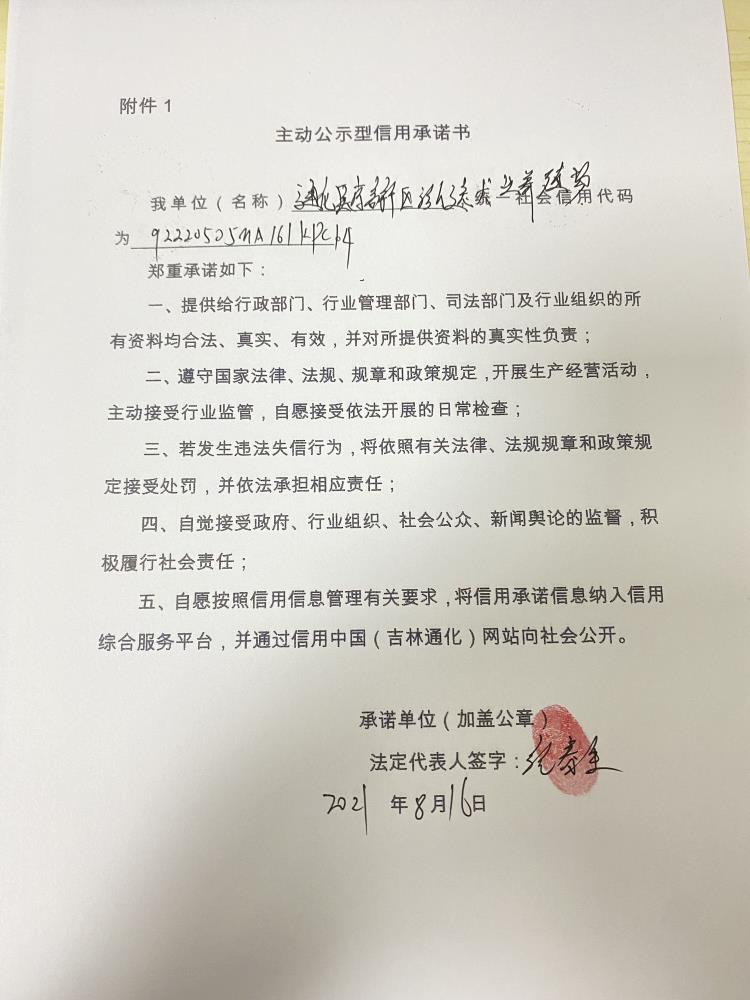 附件1
主动公示型信用承诺书
我单位（名称）社会信用代码
为 92220505MA161KPC14
郑重承诺如下：
一、提供给行政部门、行业管理部门、司法部门及行业组织的所
有资料均合法、真实、有效，并对所提供资料的真实性负责；
二、遵守国家法律、法规、规章和政策规定，开展生产经营活动，
主动接受行业监管，自愿接受依法开展的日常检查；
三、若发生违法失信行为，将依照有关法律、法规规章和政策规
定接受处罚，并依法承担相应责任；
四、自觉接受政府、行业组织、社会公众、新闻舆论的监督，积
极履行社会责任；
五、自愿按照信用信息管理有关要求，将信用承诺信息纳入信用
综合服务平台，并通过信用中国（吉林通化）网站向社会公开。
承诺单位（加盖公章）
法定代表人签字：
2021年8月16日